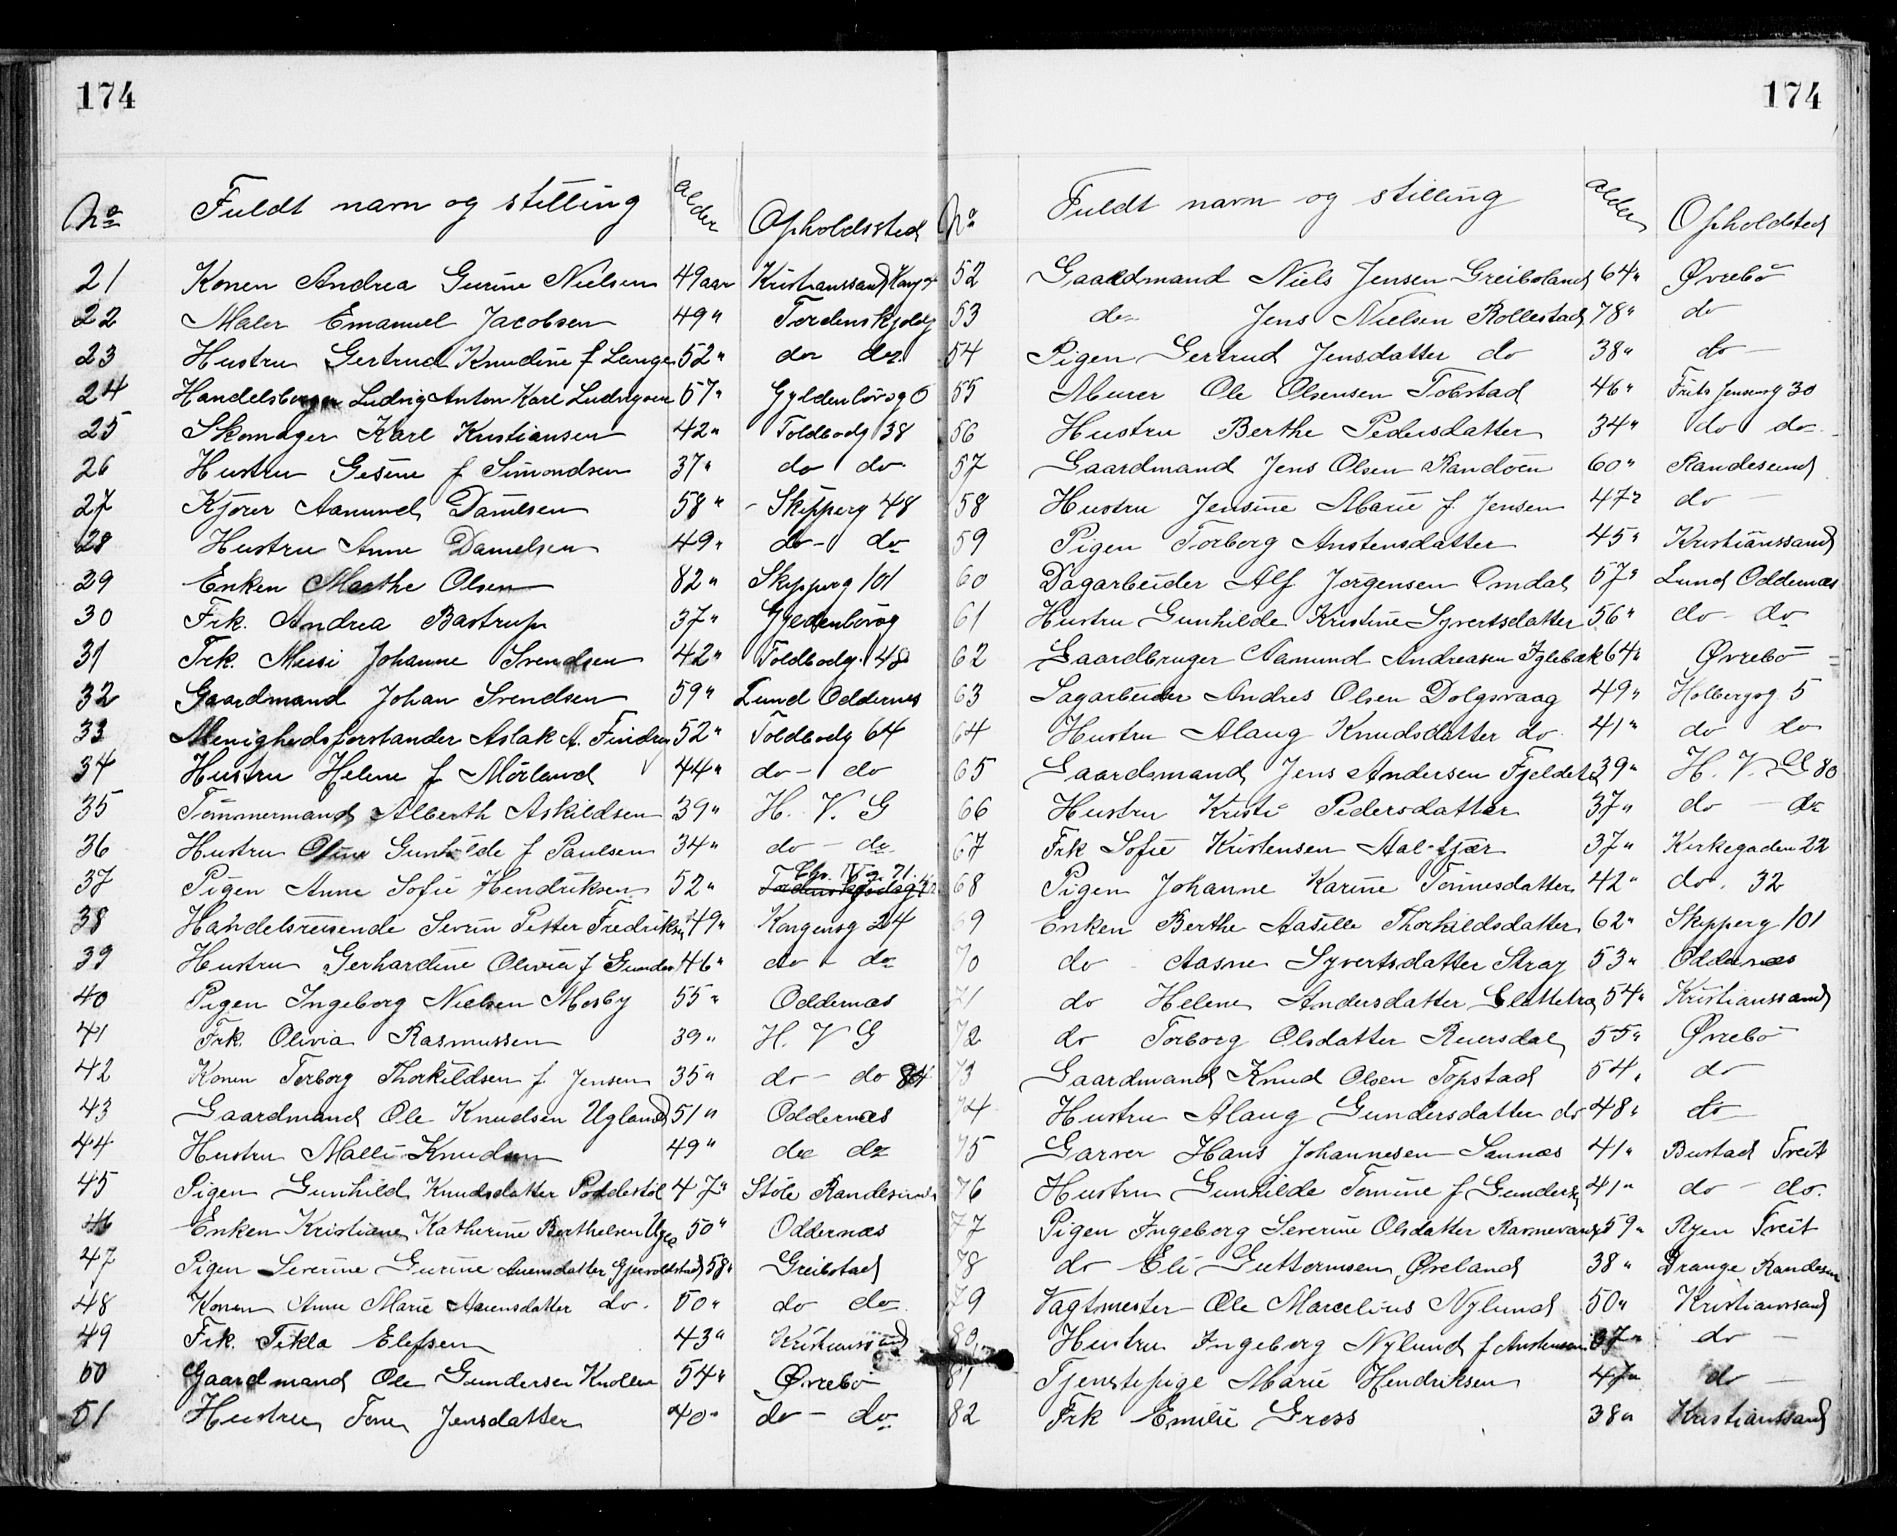 174
No Fuldt navn og stilling alder Opholdssted
21 Konen Andrea Gurine Nielsen 49 aar Kristianssand
22 Maler Emanuel Jacobsen 49 " Tordenskjoldg
23 Hustru Gertrud Knudine f Lange 52 " do do
24 Handelsborger Ludvig Anton Karl Ludvigsen 57 " Gyldenløvsg 6
25 Skomager Karl Kristiansen 42 " Toldbodg 38
26 Hustru Gesine f Simondsen 37 " do do
27 Kjører Aanund Danielsen 58 " - Skipperg 48
28 Hustru Anne Danielsen 49 " do - do
29 Enken Marthe Olsen 82 " Skipperg 101
30 Frk. Andrea Bastrup 37 " Gyldenløvsg
31 Frk. Meisi Johanne Svendsen 42 " Toldbodg. 48
32 Gaardmand Johan Svendsen 59 " Lund Oddernes
33 Menighedsforstander Aslak A. 52 " Toldbodg 64
34 Hustru Helene f Mørland 44 " do - do
35 Tømmermand Alberth Askildsen 39 " H. V. G
36 Hustru Gunhilde f Paulsen 34 " do - do
37 Pigen Anne Sofie Hendriksen 52 " Chr. IV g. 71.
38 Handelsreisende Severin Petter Fredriksen 49 " Kongensg 24
39 Hustru Gerhardine Olivia f Gunder 46 " do - do
40 Pigen Ingeborg Nielsen Mosby 55 " Oddernes
41 Frk. Olivia Rasmussen 39 " H. V G
42 Konen Torborg Thorkildsen f Jensen 35 " do - do 84
43 Gaardmand Ole Knudsen Ugland 51 " Oddernes
44 Hustru Malli Knudsen 49 " do do
45 Pigen Gunhild Knudsdatter Poddestøl 47 " Støle Randesund
46 Enken Kristiane Katherine Berthelsen 50 " Oddernes
47 Pigen Severine Gurine Auensdatter Gjervoldstad 58 " Greibstad
48 Konen Anne Marie Aanensdatter do. 50 " do do
49 Frk. Tekla Elefsen 43 " Kristianssand
50 Gaardmand Ole Gundersen Knollen 54 " Øvrebø
51 Hustru Tone Jensdatter 40 " do - do
174
No Fuldt navn og stilling alder Opholdsted
52 Gaardmand Niels Jensen Greibsland 64 " Øvrebø
53 do Jens Nielsen Rollestad 78 " do
54 Pigen Gertrud Jensdatter do 38 " do -
55 Murer Ole Olsensen Tobstad 46 " Frits Jensensg 30
56 Hustru Berthe Pedersdatter 34 " do do
57 Gaardmand Jens Olsen Randøen 60 " Randesund
58 Hustru Jensine Marie f. Jensen 47 " do
59 Pigen Torborg Anstensdatter 45 " Kristianssand
60 Dagarbeider Alf Jørgensen Omdal 57 " Lund Oddernes
61 Hustru Gunhilde Kristine Syvertsdatter 56 " do - do
62 Gaardbruger Aamund Andreasen Iglebæk 64 " Øvrebø
63 Sagarbeider Andres Olsen Dolgsvaag 49 " Holbergsg 5
64 Hustru Alaug Knudsdatter do. 41 " do do
65 Gaardmand Jens Andersen 39 " H. V. G 80
66 Hustru Kristi Pedersdatter 37 " do - do
67 Frk Sofie Kristensen Aal-kjær 37 " Kirkegaden 22
68 Pigen Johanne Karine Tønnesdatter 42 " do. 32
69 Enken Berthe Aasille Thorkildsdatter 62 " Skipperg 101
70 do Aasne Syvertsdatter Stray 53 " Oddernes
71 do Helene Andersdatter 54 " Kristianssand
72 do Torborg Olsdatter Reiersdal 55 " Øvrebø
73 Gaardmand Knud Olsen Topstad 54 " do
74 Hustru Alaug Gundersdatter do 48 " do
75 Garver Hans Johannesen Sannes 41 " Bustad Tveit
76 Hustru Gunhilde Tomine f Gunders 41 " do - do.
77 Pigen Ingeborg Severine Olsdatter 59 " Ryen Tveit
78 do Eli Guttormsen Øveland 38 " Drange Randesun
79 Vagtmester Ole Marcelius Nylund 50 " Kristianssand
80 Hustru Ingeborg Nylund f Anstensen 37 " do -
81 Tjenstepige Marie Hendriksen 47 " do -
82 Frk Emilie Gross 38 " Kristianssand